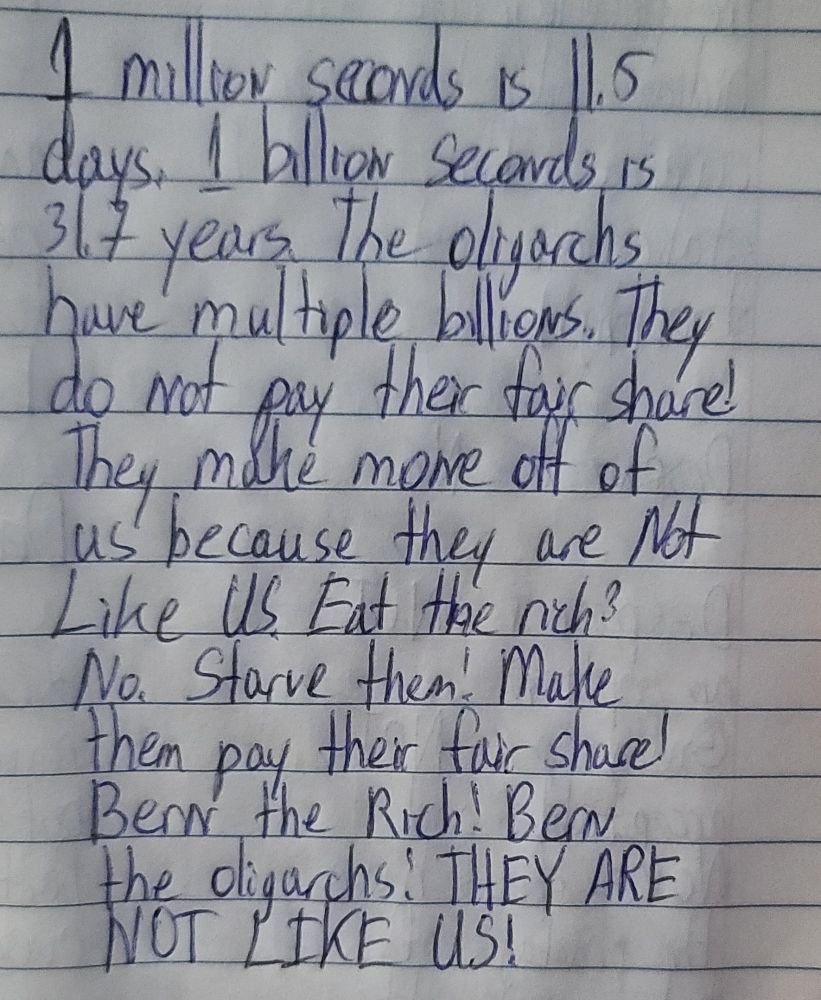 1 million seconds is 11.5
days. 1 billion seconds is
31.7 years. The oligarchs
have multiple billions. They
do not pay their fair share!
They make more off of
us because they are Not
Like US. Eat the rich?
No. Starve them! Make
them pay their fair share!
Bern the Rich! Bern
the oligarchs! THEY ARE
NOT LIKE US!